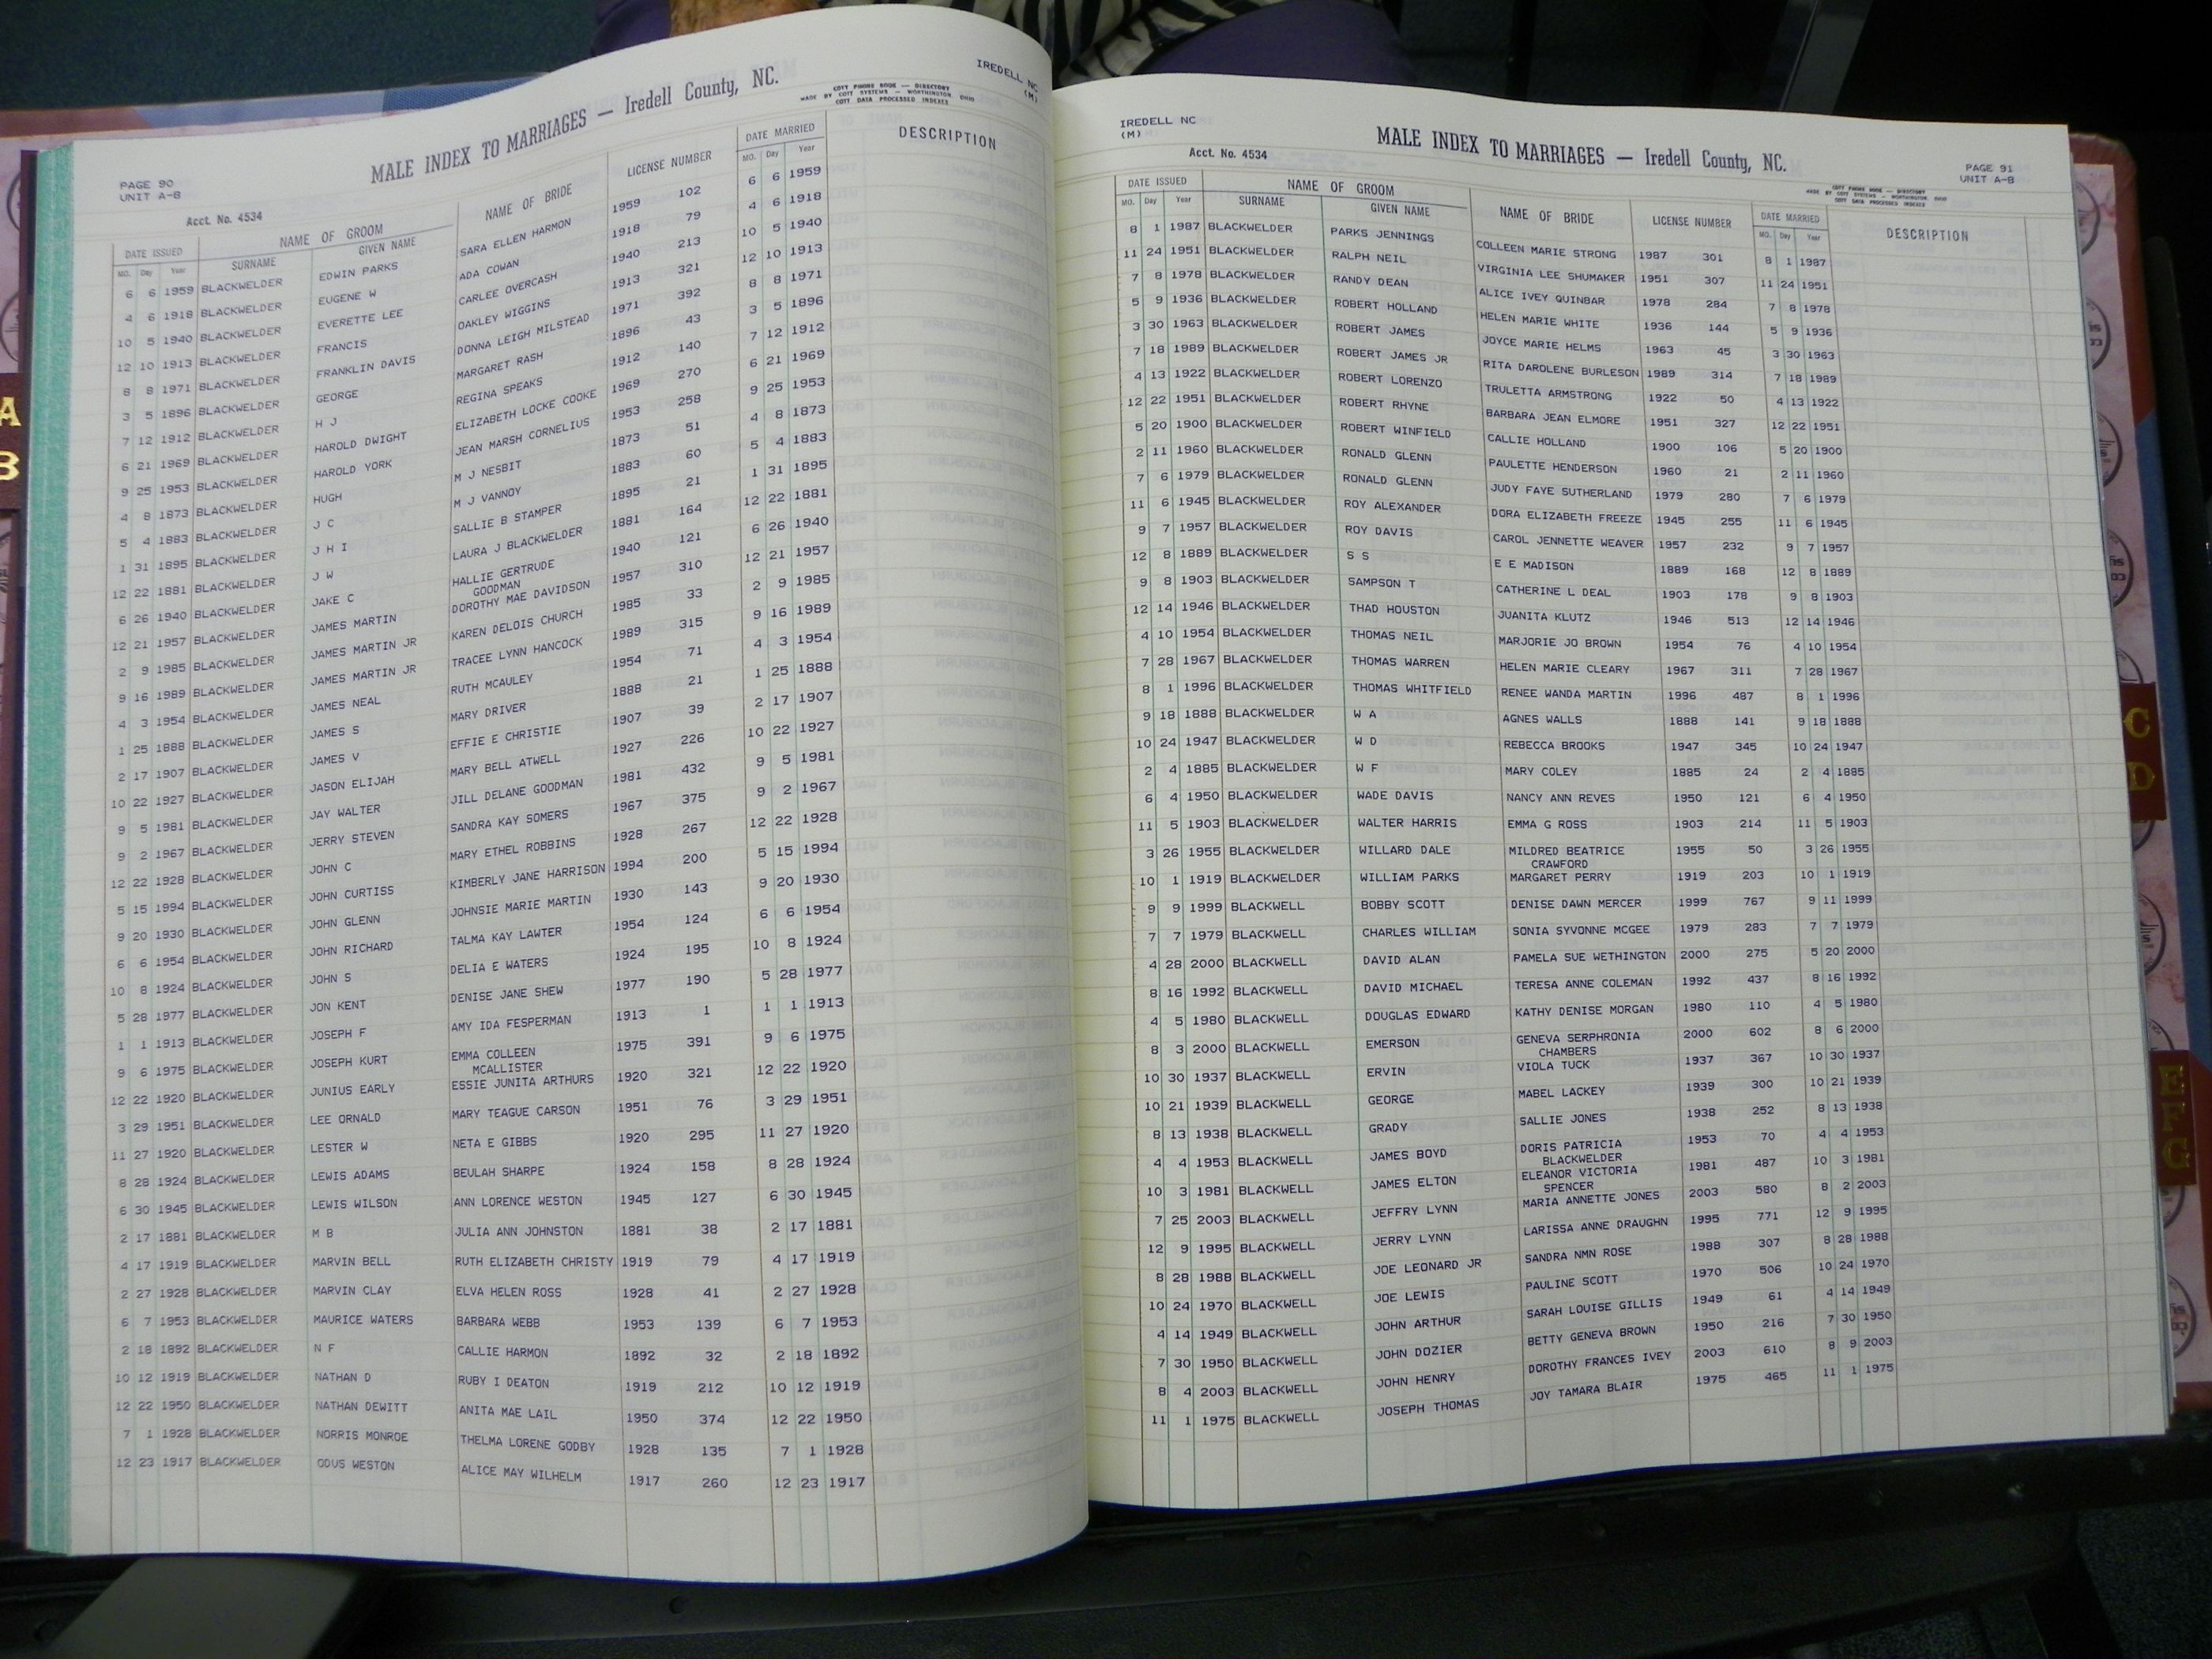 PAGE 90
UNIT A-B
MALE INDEX TO MARRIAGES — Iredell County, NC.
COTT PHONE BOOK — DIRECTORY
MADE BY COTT SYSTEMS — WORTHINGTON OHIO
COTT DATA PROCESSED INDEXES
IREDELL NC
(M)
Acct. No. 4534
DATE ISSUED NAME OF GROOM NAME OF BRIDE LICENSE NUMBER DATE MARRIED DESCRIPTION
MO. Day Year SURNAME GIVEN NAME MO. Day Year
6 6 1959 BLACKWELDER EDWIN PARKS SARA ELLEN HARMON 1959 102 6 6 1959
4 6 1918 BLACKWELDER EUGENE W ADA COWAN 1918 79 4 6 1918
10 5 1940 BLACKWELDER EVERETTE LEE CARLEE OVERCASH 1940 213 10 5 1940
12 10 1913 BLACKWELDER FRANCIS OAKLEY WIGGINS 1913 321 12 10 1913
8 8 1971 BLACKWELDER FRANKLIN DAVIS DONNA LEIGH MILSTEAD 1971 392 8 8 1971
3 5 1896 BLACKWELDER GEORGE MARGARET RASH 1896 43 3 5 1896
7 12 1912 BLACKWELDER H J REGINA SPEAKS 1912 140 7 12 1912
6 21 1969 BLACKWELDER HAROLD DWIGHT ELIZABETH LOCKE COOKE 1969 270 6 21 1969
9 25 1953 BLACKWELDER HAROLD YORK JEAN MARSH CORNELIUS 1953 258 9 25 1953
4 8 1873 BLACKWELDER HUGH M J NESBIT 1873 51 4 8 1873
5 4 1883 BLACKWELDER J C M J VANNOY 1883 60 5 4 1883
1 31 1895 BLACKWELDER J H I SALLIE B STAMPER 1895 21 1 31 1895
12 22 1881 BLACKWELDER J W LAURA J BLACKWELDER 1881 164 12 22 1881
6 26 1940 BLACKWELDER JAKE C HALLIE GERTRUDE 1940 121 6 26 1940
GOODMAN
12 21 1957 BLACKWELDER JAMES MARTIN DOROTHY MAE DAVIDSON 1957 310 12 21 1957
2 9 1985 BLACKWELDER JAMES MARTIN JR KAREN DELOIS CHURCH 1985 33 2 9 1985
9 16 1989 BLACKWELDER JAMES MARTIN JR TRACEE LYNN HANCOCK 1989 315 9 16 1989
4 3 1954 BLACKWELDER JAMES NEAL RUTH MCAULEY 1954 71 4 3 1954
1 25 1888 BLACKWELDER JAMES S MARY DRIVER 1888 21 1 25 1888
2 17 1907 BLACKWELDER JAMES V EFFIE E CHRISTIE 1907 39 2 17 1907
10 22 1927 BLACKWELDER JASON ELIJAH MARY BELL ATWELL 1927 226 10 22 1927
9 5 1981 BLACKWELDER JAY WALTER JILL DELANE GOODMAN 1981 432 9 5 1981
9 2 1967 BLACKWELDER JERRY STEVEN SANDRA KAY SOMERS 1967 375 9 2 1967
12 22 1928 BLACKWELDER JOHN C MARY ETHEL ROBBINS 1928 267 12 22 1928
5 15 1994 BLACKWELDER JOHN CURTISS KIMBERLY JANE HARRISON 1994 200 5 15 1994
9 20 1930 BLACKWELDER JOHN GLENN JOHNSIE MARIE MARTIN 1930 143 9 20 1930
6 6 1954 BLACKWELDER JOHN RICHARD TALMA KAY LAWTER 1954 124 6 6 1954
10 8 1924 BLACKWELDER JOHN S DELIA E WATERS 1924 195 10 8 1924
5 28 1977 BLACKWELDER JON KENT DENISE JANE SHEW 1977 190 5 28 1977
1 1 1913 BLACKWELDER JOSEPH F AMY IDA FESPERMAN 1913 1 1 1 1913
9 6 1975 BLACKWELDER JOSEPH KURT EMMA COLLEEN 1975 391 9 6 1975
MCALLISTER
12 22 1920 BLACKWELDER JUNIUS EARLY ESSIE JUNITA ARTHURS 1920 321 12 22 1920
3 29 1951 BLACKWELDER LEE ORNALD MARY TEAGUE CARSON 1951 76 3 29 1951
11 27 1920 BLACKWELDER LESTER W NETA E GIBBS 1920 295 11 27 1920
8 28 1924 BLACKWELDER LEWIS ADAMS BEULAH SHARPE 1924 158 8 28 1924
6 30 1945 BLACKWELDER LEWIS WILSON ANN LORENCE WESTON 1945 127 6 30 1945
2 17 1881 BLACKWELDER M B JULIA ANN JOHNSTON 1881 38 2 17 1881
4 17 1919 BLACKWELDER MARVIN BELL RUTH ELIZABETH CHRISTY 1919 79 4 17 1919
2 27 1928 BLACKWELDER MARVIN CLAY ELVA HELEN ROSS 1928 41 2 27 1928
6 7 1953 BLACKWELDER MAURICE WATERS BARBARA WEBB 1953 139 6 7 1953
2 18 1892 BLACKWELDER N F CALLIE HARMON 1892 32 2 18 1892
10 12 1919 BLACKWELDER NATHAN D RUBY I DEATON 1919 212 10 12 1919
12 22 1950 BLACKWELDER NATHAN DEWITT ANITA MAE LAIL 1950 374 12 22 1950
7 1 1928 BLACKWELDER NORRIS MONROE THELMA LORENE GODBY 1928 135 7 1 1928
12 23 1917 BLACKWELDER ODUS WESTON ALICE MAY WILHELM 1917 260 12 23 1917
IREDELL NC
(M)
Acct. No. 4534
MALE INDEX TO MARRIAGES — Iredell County, NC.
PAGE 91
UNIT A-B
COTT PHONE BOOK — DIRECTORY
MADE BY COTT SYSTEMS — WORTHINGTON OHIO
COTT DATA PROCESSED INDEXES
DATE ISSUED NAME OF GROOM NAME OF BRIDE LICENSE NUMBER DATE MARRIED DESCRIPTION
MO. Day Year SURNAME GIVEN NAME MO. Day Year
8 1 1987 BLACKWELDER PARKS JENNINGS COLLEEN MARIE STRONG 1987 301 8 1 1987
11 24 1951 BLACKWELDER RALPH NEIL VIRGINIA LEE SHUMAKER 1951 307 11 24 1951
7 8 1978 BLACKWELDER RANDY DEAN ALICE IVEY QUINBAR 1978 284 7 8 1978
5 9 1936 BLACKWELDER ROBERT HOLLAND HELEN MARIE WHITE 1936 144 5 9 1936
3 30 1963 BLACKWELDER ROBERT JAMES JOYCE MARIE HELMS 1963 45 3 30 1963
7 18 1989 BLACKWELDER ROBERT JAMES JR RITA DAROLENE BURLESON 1989 314 7 18 1989
4 13 1922 BLACKWELDER ROBERT LORENZO TRULETTA ARMSTRONG 1922 50 4 13 1922
12 22 1951 BLACKWELDER ROBERT RHYNE BARBARA JEAN ELMORE 1951 327 12 22 1951
5 20 1900 BLACKWELDER ROBERT WINFIELD CALLIE HOLLAND 1900 106 5 20 1900
2 11 1960 BLACKWELDER RONALD GLENN PAULETTE HENDERSON 1960 21 2 11 1960
7 6 1979 BLACKWELDER RONALD GLENN JUDY FAYE SUTHERLAND 1979 280 7 6 1979
11 6 1945 BLACKWELDER ROY ALEXANDER DORA ELIZABETH FREEZE 1945 255 11 6 1945
9 7 1957 BLACKWELDER ROY DAVIS CAROL JENNETTE WEAVER 1957 232 9 7 1957
12 8 1889 BLACKWELDER S S E E MADISON 1889 168 12 8 1889
9 8 1903 BLACKWELDER SAMPSON T CATHERINE L DEAL 1903 178 9 8 1903
12 14 1946 BLACKWELDER THAD HOUSTON JUANITA KLUTZ 1946 513 12 14 1946
4 10 1954 BLACKWELDER THOMAS NEIL MARJORIE JO BROWN 1954 76 4 10 1954
7 28 1967 BLACKWELDER THOMAS WARREN HELEN MARIE CLEARY 1967 311 7 28 1967
8 1 1996 BLACKWELDER THOMAS WHITFIELD RENEE WANDA MARTIN 1996 487 8 1 1996
9 18 1888 BLACKWELDER W A AGNES WALLS 1888 141 9 18 1888
10 24 1947 BLACKWELDER W D REBECCA BROOKS 1947 345 10 24 1947
2 4 1885 BLACKWELDER W F MARY COLEY 1885 24 2 4 1885
6 4 1950 BLACKWELDER WADE DAVIS NANCY ANN REVES 1950 121 6 4 1950
11 5 1903 BLACKWELDER WALTER HARRIS EMMA G ROSS 1903 214 11 5 1903
3 26 1955 BLACKWELDER WILLARD DALE MILDRED BEATRICE 1955 50 3 26 1955
CRAWFORD
10 1 1919 BLACKWELDER WILLIAM PARKS MARGARET PERRY 1919 203 10 1 1919
9 9 1999 BLACKWELL BOBBY SCOTT DENISE DAWN MERCER 1999 767 9 11 1999
7 7 1979 BLACKWELL CHARLES WILLIAM SONIA SYVONNE MCGEE 1979 283 7 7 1979
4 28 2000 BLACKWELL DAVID ALAN PAMELA SUE WETHINGTON 2000 275 5 20 2000
8 16 1992 BLACKWELL DAVID MICHAEL TERESA ANNE COLEMAN 1992 437 8 16 1992
4 5 1980 BLACKWELL DOUGLAS EDWARD KATHY DENISE MORGAN 1980 110 4 5 1980
8 3 2000 BLACKWELL EMERSON GENEVA SERPHRONIA 2000 602 8 6 2000
CHAMBERS
10 30 1937 BLACKWELL ERVIN VIOLA TUCK 1937 367 10 30 1937
10 21 1939 BLACKWELL GEORGE MABEL LACKEY 1939 300 10 21 1939
8 13 1938 BLACKWELL GRADY SALLIE JONES 1938 252 8 13 1938
4 4 1953 BLACKWELL JAMES BOYD DORIS PATRICIA 1953 70 4 4 1953
BLACKWELDER
10 3 1981 BLACKWELL JAMES ELTON ELEANOR VICTORIA 1981 487 10 3 1981
SPENCER
7 25 2003 BLACKWELL JEFFRY LYNN MARIA ANNETTE JONES 2003 580 8 2 2003
12 9 1995 BLACKWELL JERRY LYNN LARISSA ANNE DRAUGHN 1995 771 12 9 1995
8 28 1988 BLACKWELL JOE LEONARD JR SANDRA NMN ROSE 1988 307 8 28 1988
10 24 1970 BLACKWELL JOE LEWIS PAULINE SCOTT 1970 506 10 24 1970
4 14 1949 BLACKWELL JOHN ARTHUR SARAH LOUISE GILLIS 1949 61 4 14 1949
7 30 1950 BLACKWELL JOHN DOZIER BETTY GENEVA BROWN 1950 216 7 30 1950
8 4 2003 BLACKWELL JOHN HENRY DOROTHY FRANCES IVEY 2003 610 8 9 2003
11 1 1975 BLACKWELL JOSEPH THOMAS JOY TAMARA BLAIR 1975 465 11 1 1975
A
B
C
D
E
F
G